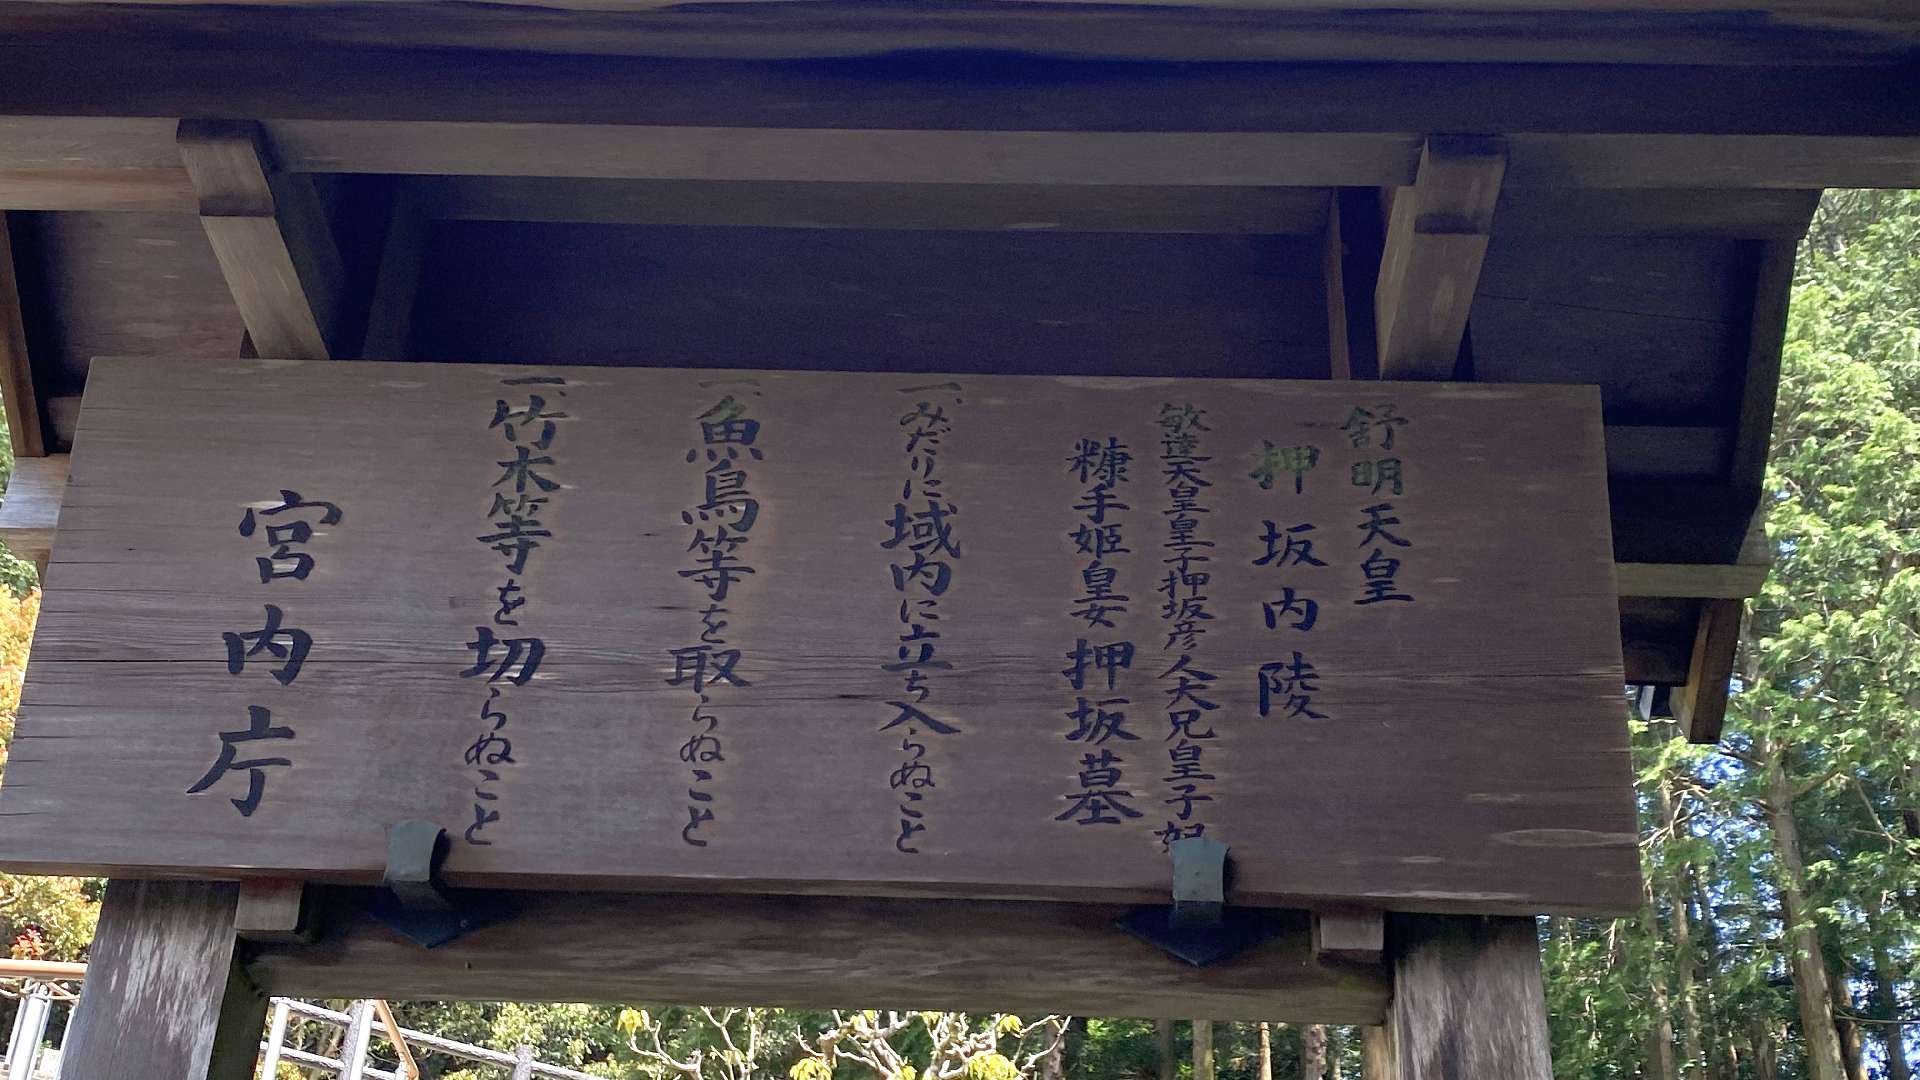 舒明天皇
押坂内陵
敏達天皇皇子押坂彦人大兄皇子妃
糠手姫皇女押坂墓
一、みだりに域内に立ち入らぬこと
一、魚鳥等を取らぬこと
一、竹木等を切らぬこと
宮内庁